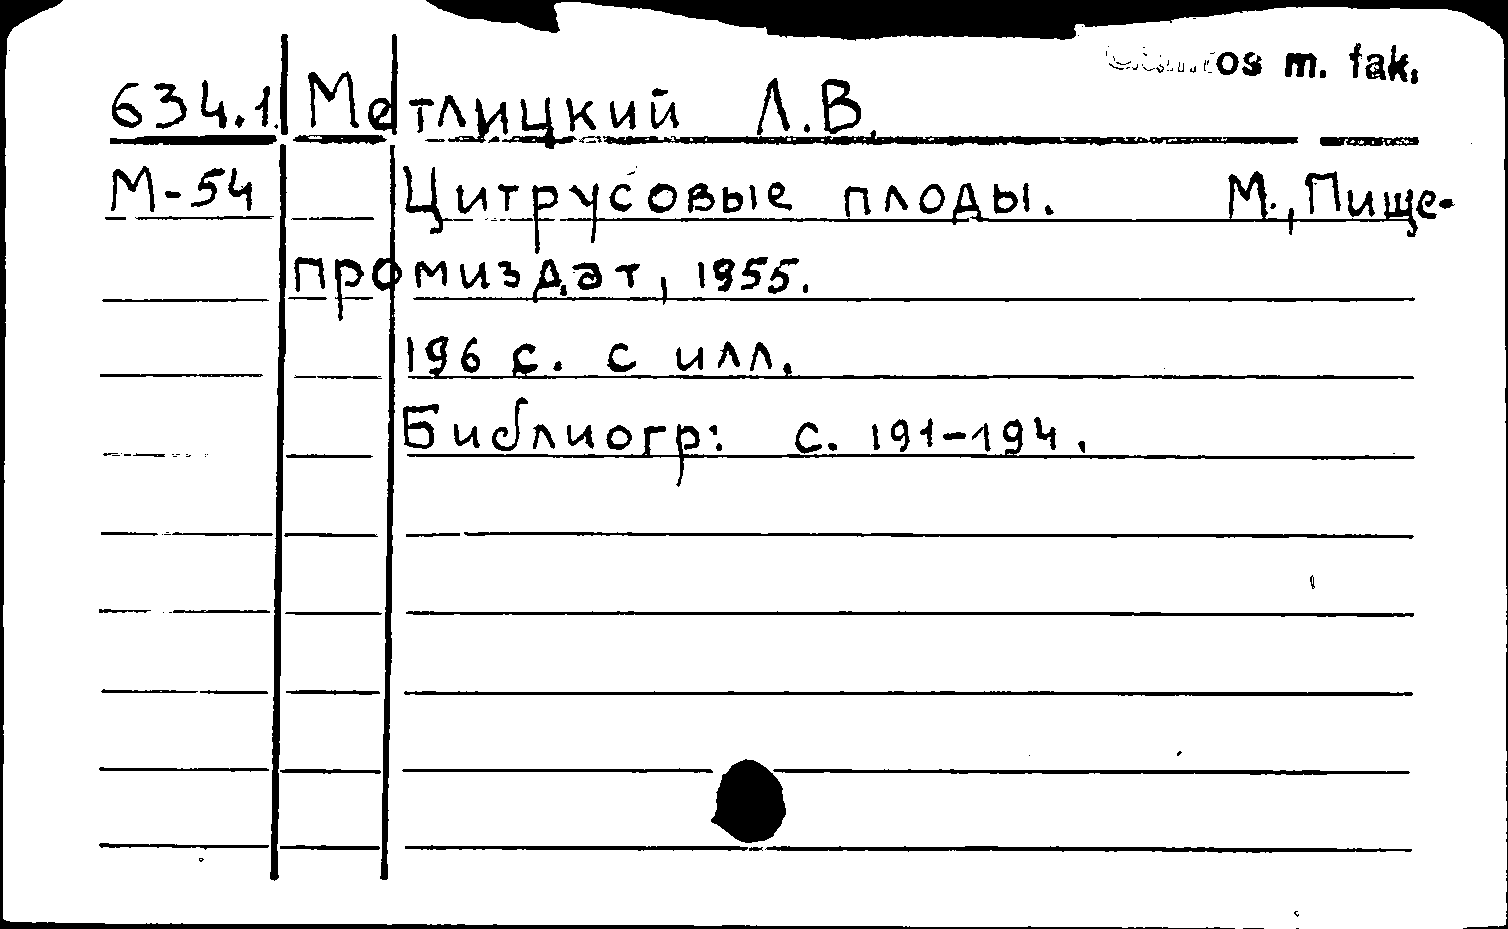 m. fak.
634.1 Метлицкий Л.В.
М-54 Цитрусовые плоды. М., Пище-
промиздат, 1955.
196 с. с илл.
Библиогр: с. 191-194.